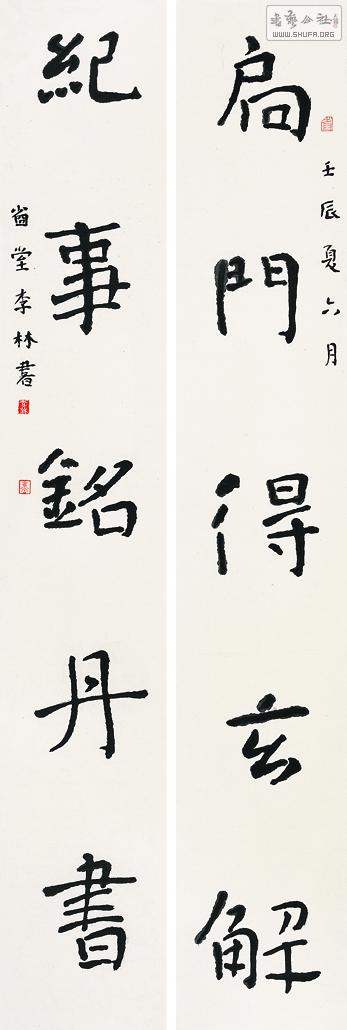 書藝公社
WWW.SHUFA.ORG
壬辰夏六月
扃門得玄解
紀事銘丹書
堂李林書